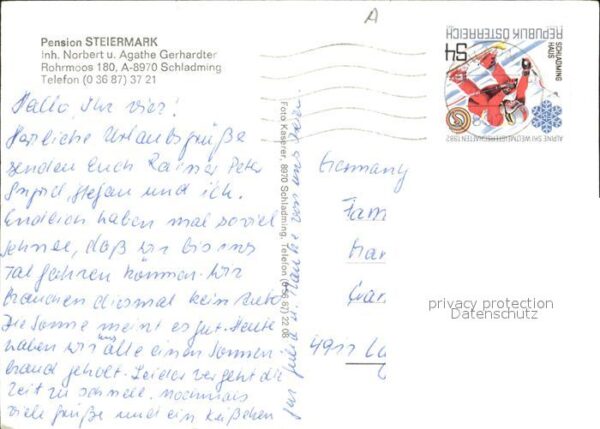 A
Pension STEIERMARK
Inh. Norbert u. Agathe Gerhardter
Rohrmoos 180, A-8970 Schladming
Telefon (0 36 87) 37 21
Hallo, Ihr vier!
Herzliche Urlaubsgrüße
senden Euch Rainer Peter
Ingrid, Stefan und ich.
Endlich haben mal soviel
Schnee, daß wir bis ins
Tal fahren können. Wir
brauchen diesmal kein Auto
Die Sonne meint es gut. Heute
haben wir uns alle einen Sonnen-
brand geholt. Leider vergeht die
Zeit zu schnell. Nochmals
viele Grüße und ein Küßchen
für jeden
von uns allen.
Foto Kaserer, 8970 Schladming, Telefon (0 36 87) 22 08
REPUBLIK ÖSTERREICH
S4
SCHLADMING
HAUS
ALPINE SKI WELTMEISTERSCHAFTEN 1982
Germany
Fam
privacy protection
Datenschutz